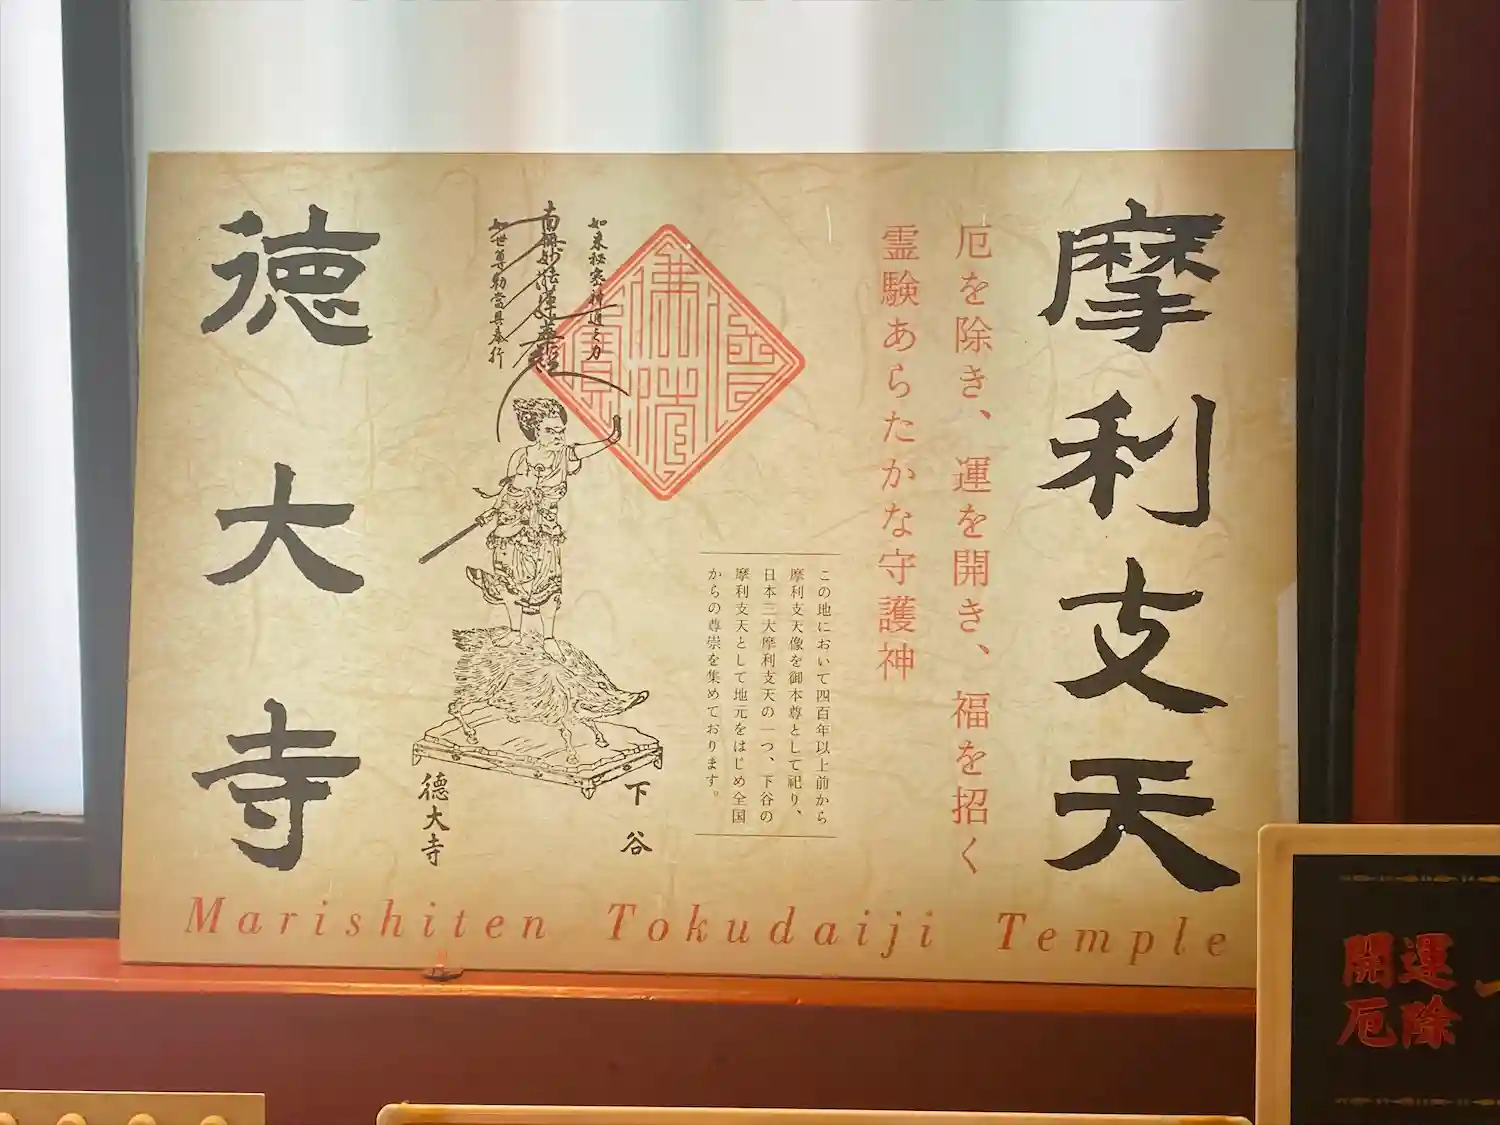 摩利支天
厄を除き、運を開き、福を招く
霊験あらたかな守護神
この地において四百年以上前から
摩利支天像を御本尊として祀り、
日本三大摩利支天の一つ、下谷の
摩利支天として地元をはじめ全国
からの尊崇を集めております。
如来秘密神通之力
南無妙法蓮華經
如世尊勅當具奉行
下谷
徳大寺
徳大寺
Marishiten Tokudaiji Temple
開運
厄除